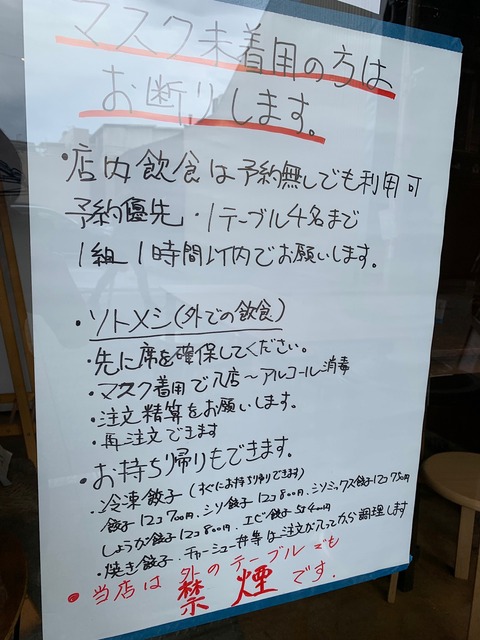 マスク未着用の方は
お断りします。
・店内飲食は予約無しでも利用可
予約優先・1テーブル4名まで
1組1時間以内でお願いします。
・ソトメシ(外での飲食)
・先に席を確保してください。
・マスク着用で入店～アルコール消毒
・注文精算をお願いします。
・再注文できます
・お持ち帰りもできます。
・冷凍餃子(すぐにお持ち帰りできます)
餃子12コ700円、シソ餃子12コ800円、シソミックス餃子12コ750円
しょうが餃子12コ800円、エビ餃子5コ400円
・焼き餃子、チャーシュー丼等はご注文が入ってから調理します
・当店は外のテーブルでも
禁煙です。